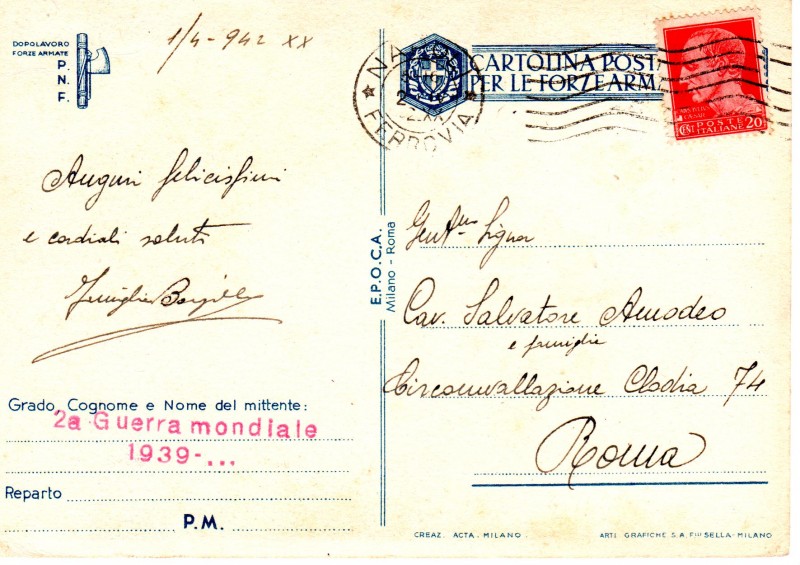 DOPOLAVORO
FORZE ARMATE
P.
N.
F.
1/4-942 XX
Auguri felicissimi
e cordiali saluti
Famiglia
Grado, Cognome e Nome del mittente:
2a Guerra mondiale
1939-...
Reparto
P.M.
E.P.O.C.A.
Milano - Roma
CARTOLINA POST
PER LE FORZE ARMA
FERROVIA
POSTE
ITALIANE
CENT 20
Gent.mo Signor
Cav. Salvatore Amodeo
e famiglia
Circonvallazione Clodia 74
Roma
CREAZ. ACTA. MILANO.
ARTI GRAFICHE S.A. F.lli SELLA-MILANO